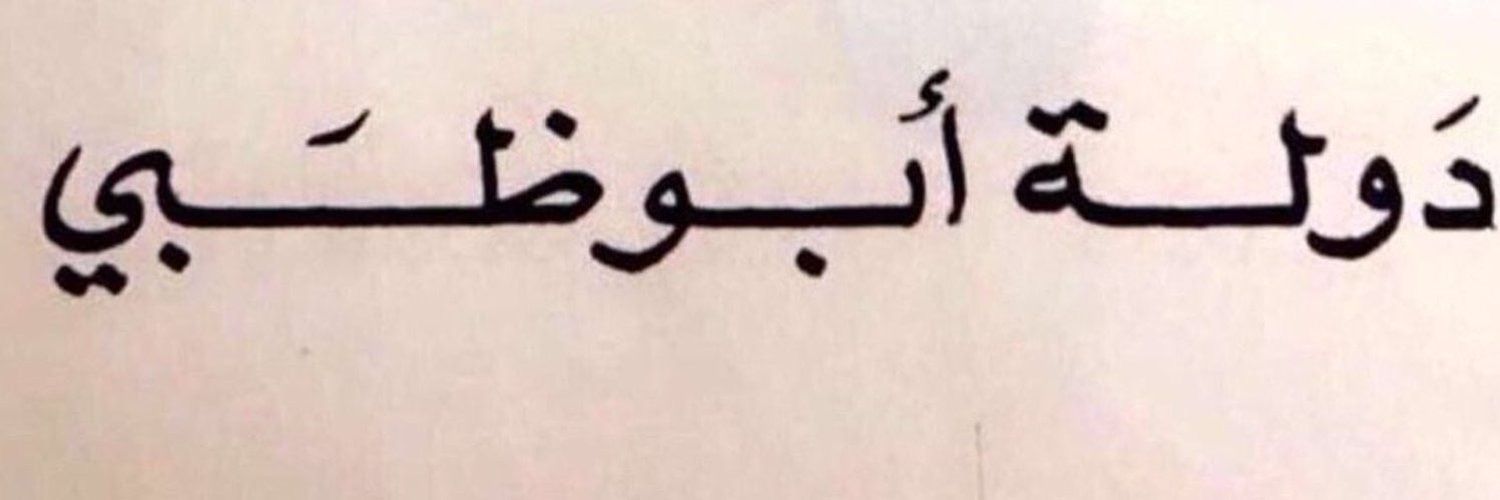 دَولـــة أبـــوظـــَبي